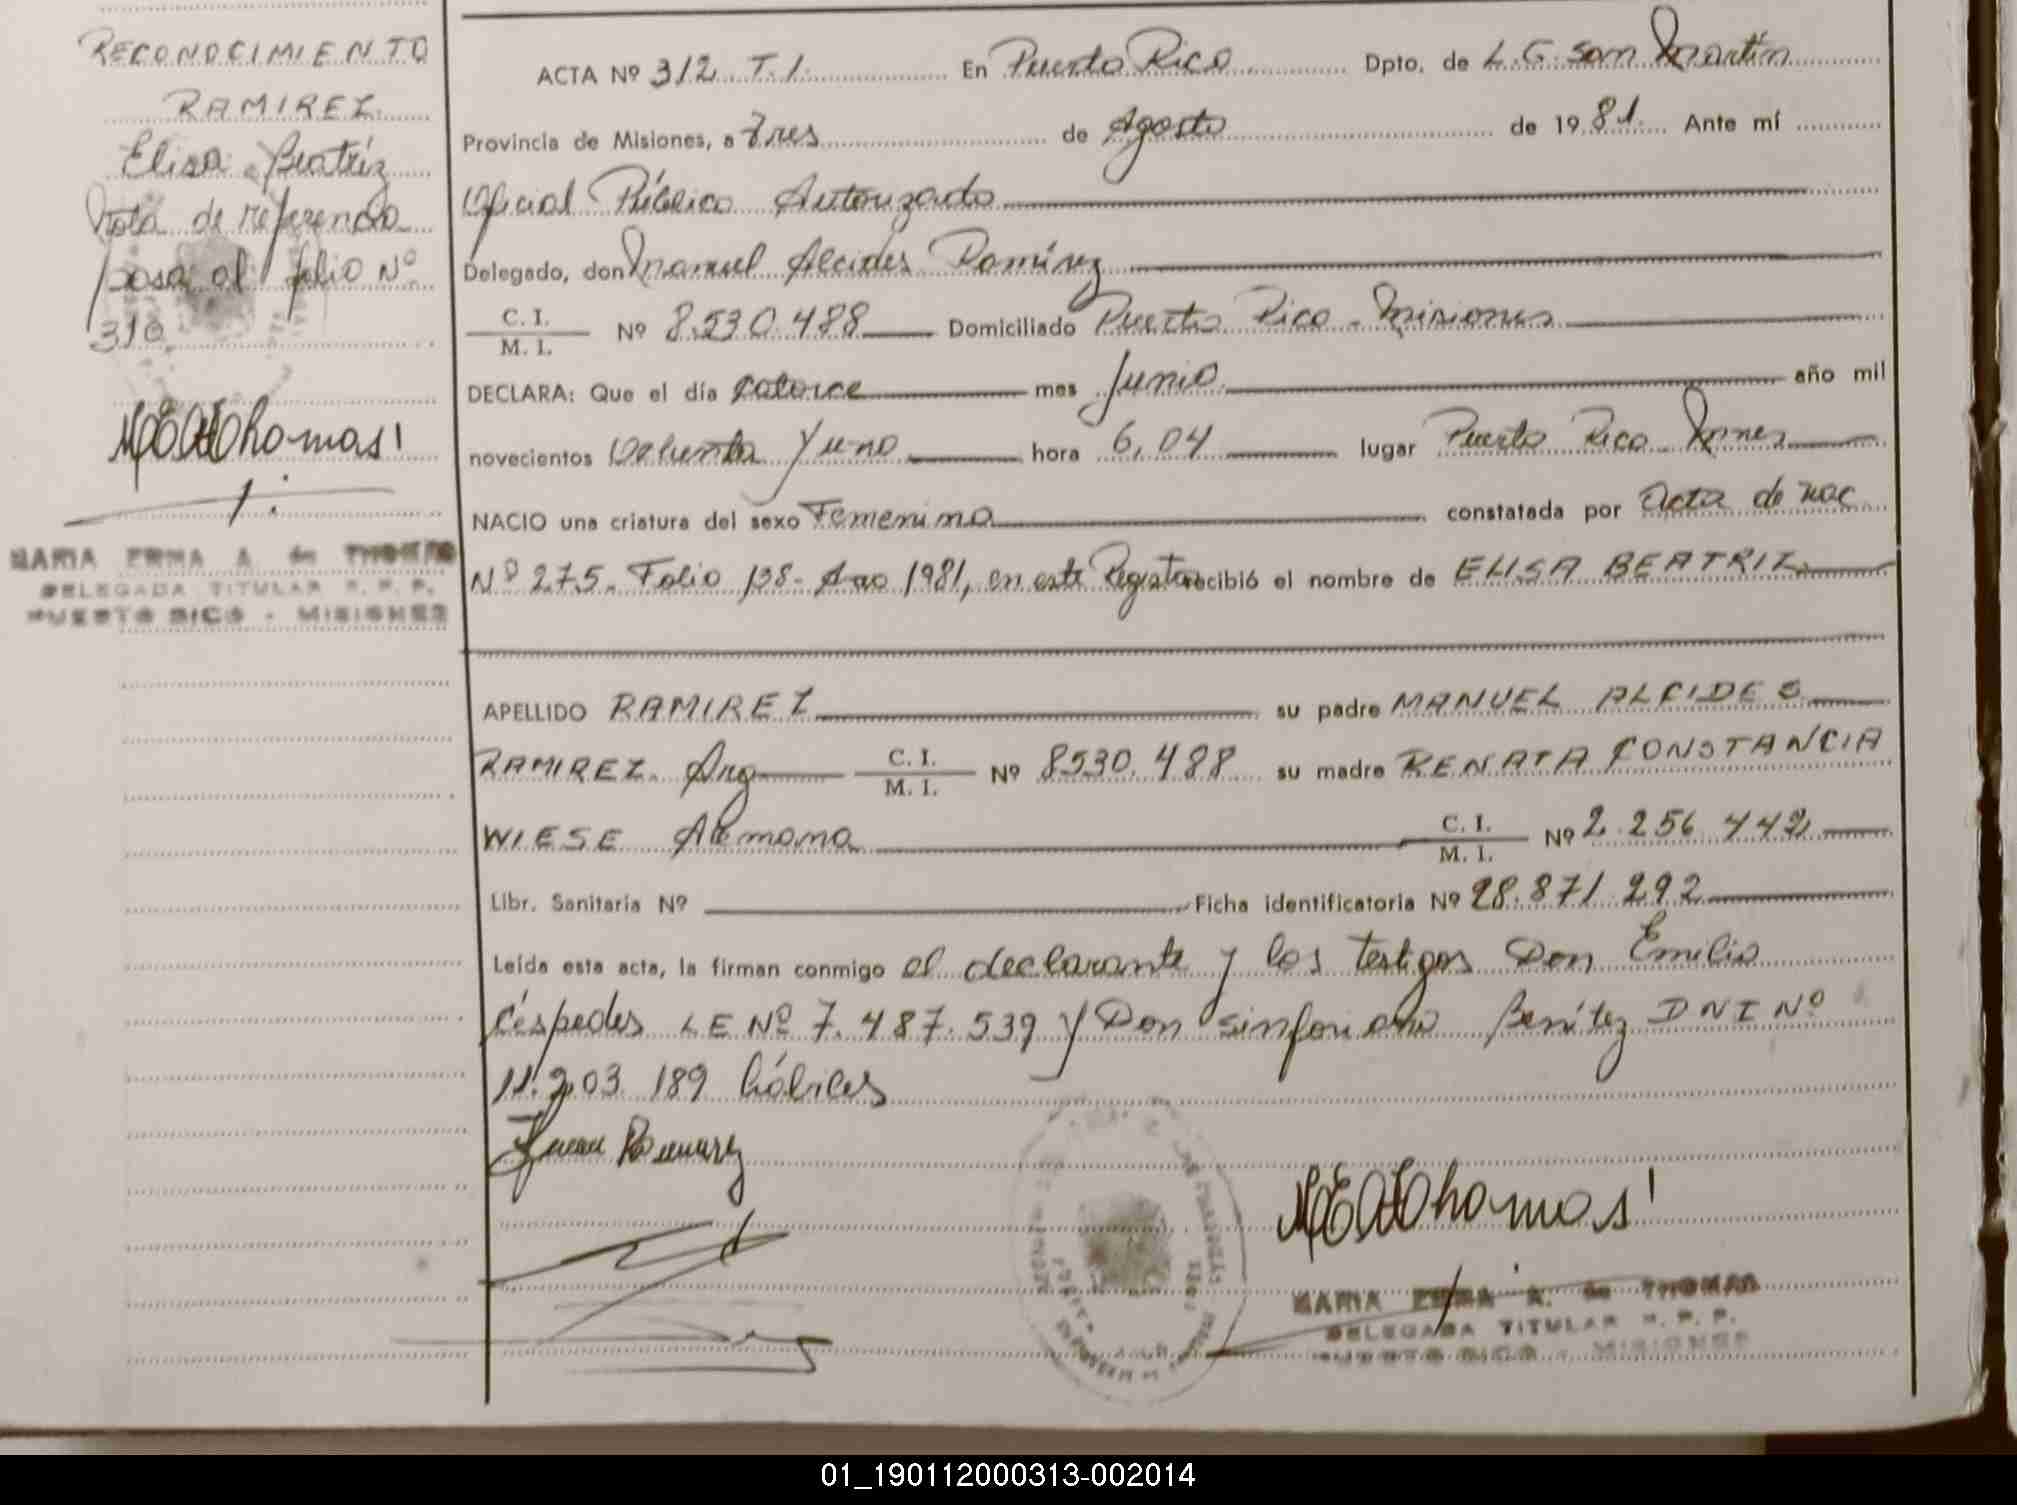 RECONOCIMIENTO
RAMIREZ
Elisa Beatríz
Nota de referencia
pasa al folio Nº
310
MARIA ERMA A. de THOMAS
DELEGADA TITULAR R. P. P.
PUERTO RICO - MISIONES
ACTA Nº 312 T. I. En Puerto Rico Dpto. de L. G. San Martín
Provincia de Misiones, a Tres de Agosto de 1981. Ante mí
Oficial Público Autorizado
Delegado, don Manuel Alcides Ramírez
C. I.
M. I. Nº 8.530.488 Domiciliado Puerto Rico - Misiones
DECLARA: Que el día catorce mes Junio año mil
novecientos Ochenta y uno hora 6,04 lugar Puerto Rico Mnes
NACIO una criatura del sexo Femenino constatada por Acta de nac
Nº 275. Folio 138 - Año 1981, en este Registro recibió el nombre de ELISA BEATRIZ
APELLIDO RAMIREZ su padre MANUEL ALCIDES
RAMIREZ. Arg C. I.
M. I. Nº 8530.488 su madre RENATA CONSTANCIA
WIESE Alemana C. I.
M. I. Nº 2.256.442
Libr. Sanitaria Nº Ficha identificatoria Nº 28.871.292
Leída esta acta, la firman conmigo el declarante y los testigos Don Emilio
Céspedes L E Nº 7.487.539 y Don Sinforiano Benítez D N I Nº
11.203.189 hábiles
MARIA ERMA A. de THOMAS
DELEGADA TITULAR R. P. P.
PUERTO RICO - MISIONES
01_190112000313-002014